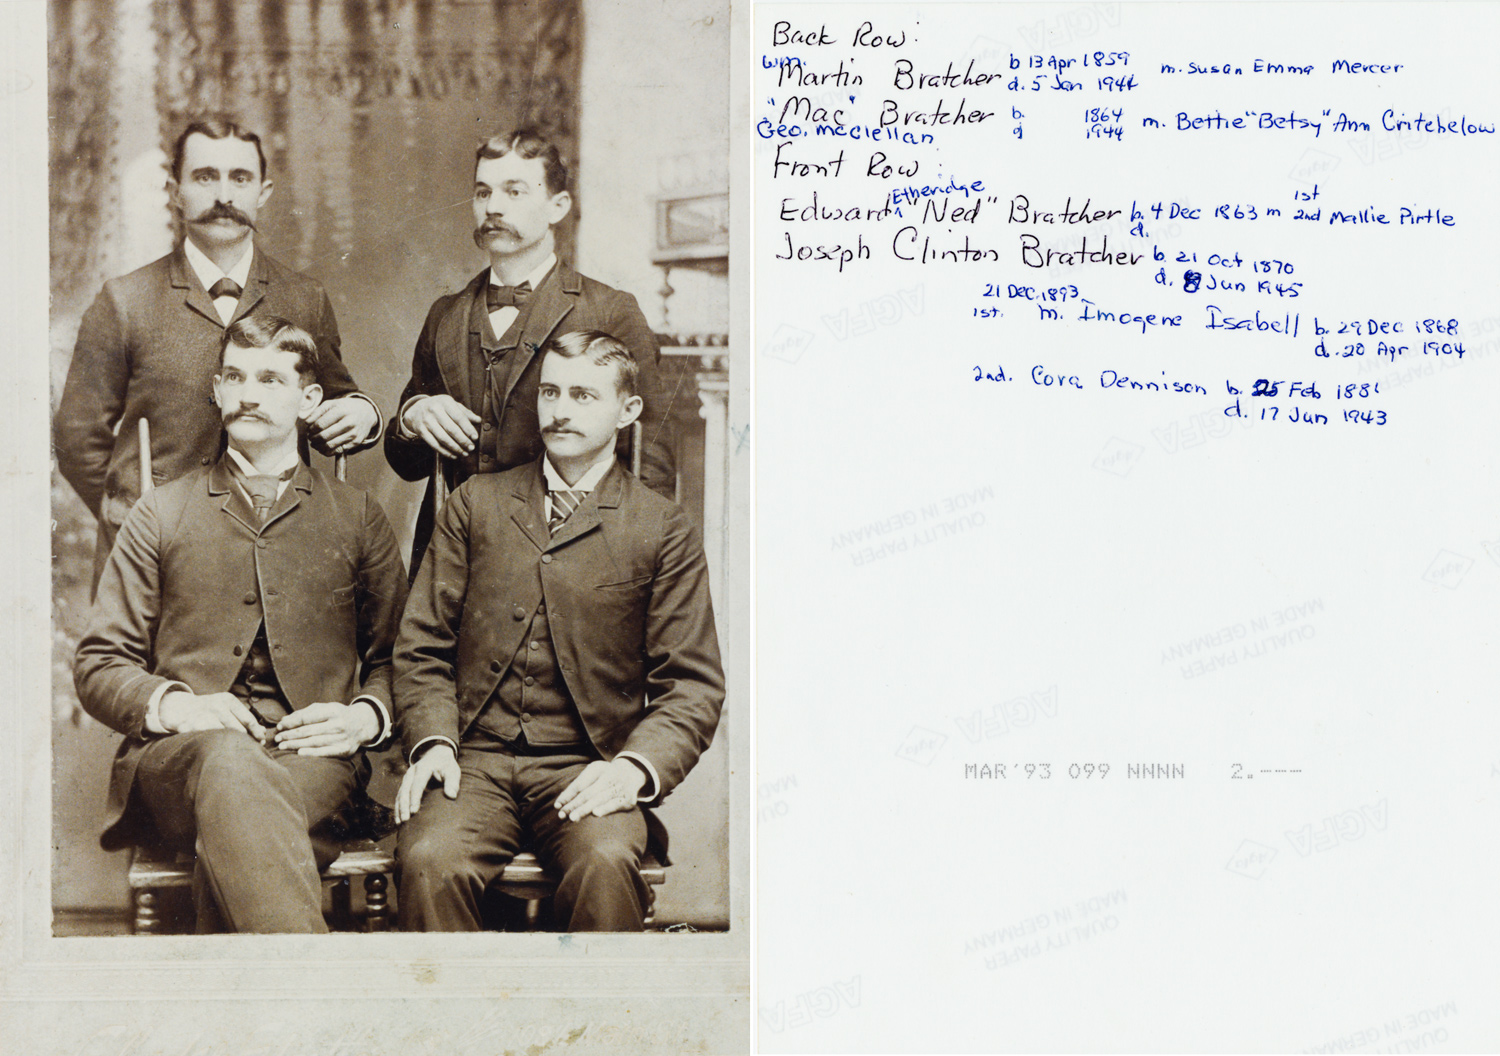 Back Row:
Wm. Martin Bratcher b 13 Apr 1859 m. Susan Emma Mercer
d. 5 Jan 1944
"Mac" Bratcher b. 1864 m. Bettie "Betsy" Ann Critchelow
Geo. McClellan d 1944
Front Row:
Edward Etheridge "Ned" Bratcher b. 4 Dec 1863 m 1st 2nd Mallie Pirtle
d.
Joseph Clinton Bratcher b. 21 Oct 1870
d. 8 Jun 1945
21 Dec. 1893
1st. m. Imogene Isabell b. 29 Dec 1868
d. 20 Apr 1904
2nd. Cora Dennison b. 25 Feb 1881
d. 17 Jun 1943
AGFA
QUALITY PAPER
MADE IN GERMANY
MAR'93 099 NNNN 2.---